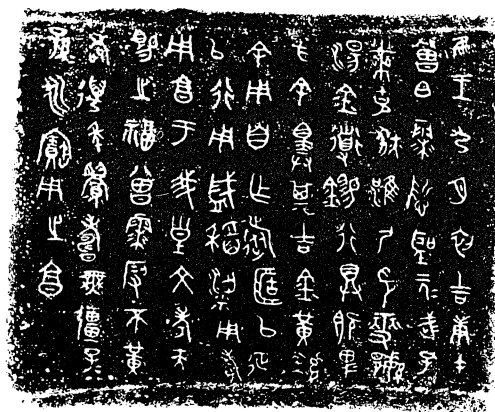 隹王九月初吉庚午
曾白霥悊聖元武孔
黹克狄淮尸印燮繁
湯金道錫行具既卑
方余擇其吉金黃鑪
余用自乍旅簠以征
以行用盛稻粱用孝
用享于我皇文考天
賜之福曾霥叚不黃
耇萬年眉壽無疆子
孫永寶用之享